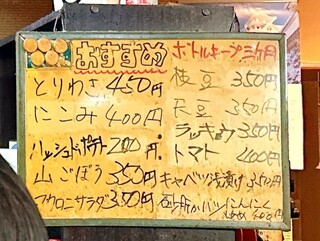 おすすめ
とりわさ 450円
にこみ 400円
ハッシュドポテト 200円
山ごぼう 350円
マカロニサラダ 350円
ボトルキープ三ヶ月
枝豆 350円
天豆 350円
ラッキョウ 350円
トマト 400円
キャベツ浅漬け 350円
砂肝 にんにく